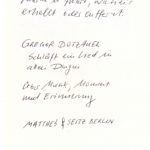 GREGOR DOTZAUER
Schläft ein Lied in
allen Dingen
Über Musik, Moment
und Erinnerung
MATTHES & SEITZ BERLIN